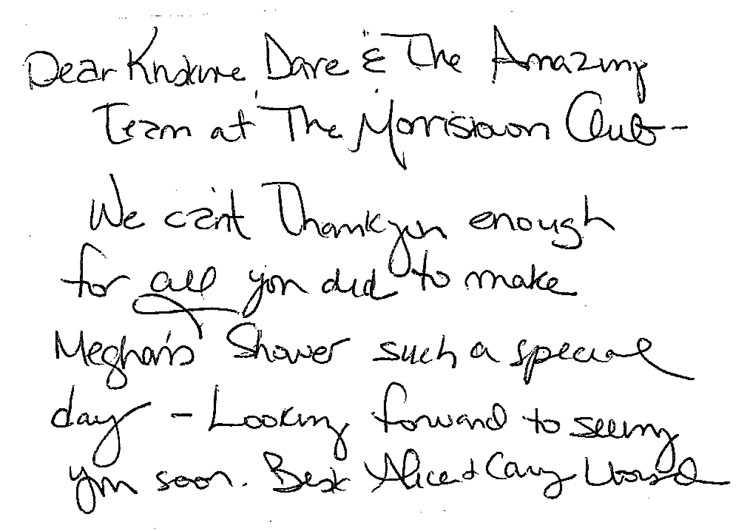 Dear Kristine Dare & The Amazing
Team at The Morristown Club -
We can't Thank you enough
for all you did to make
Meghan's Shower such a special
day - Looking forward to seeing
you soon. Best Alice & Cary